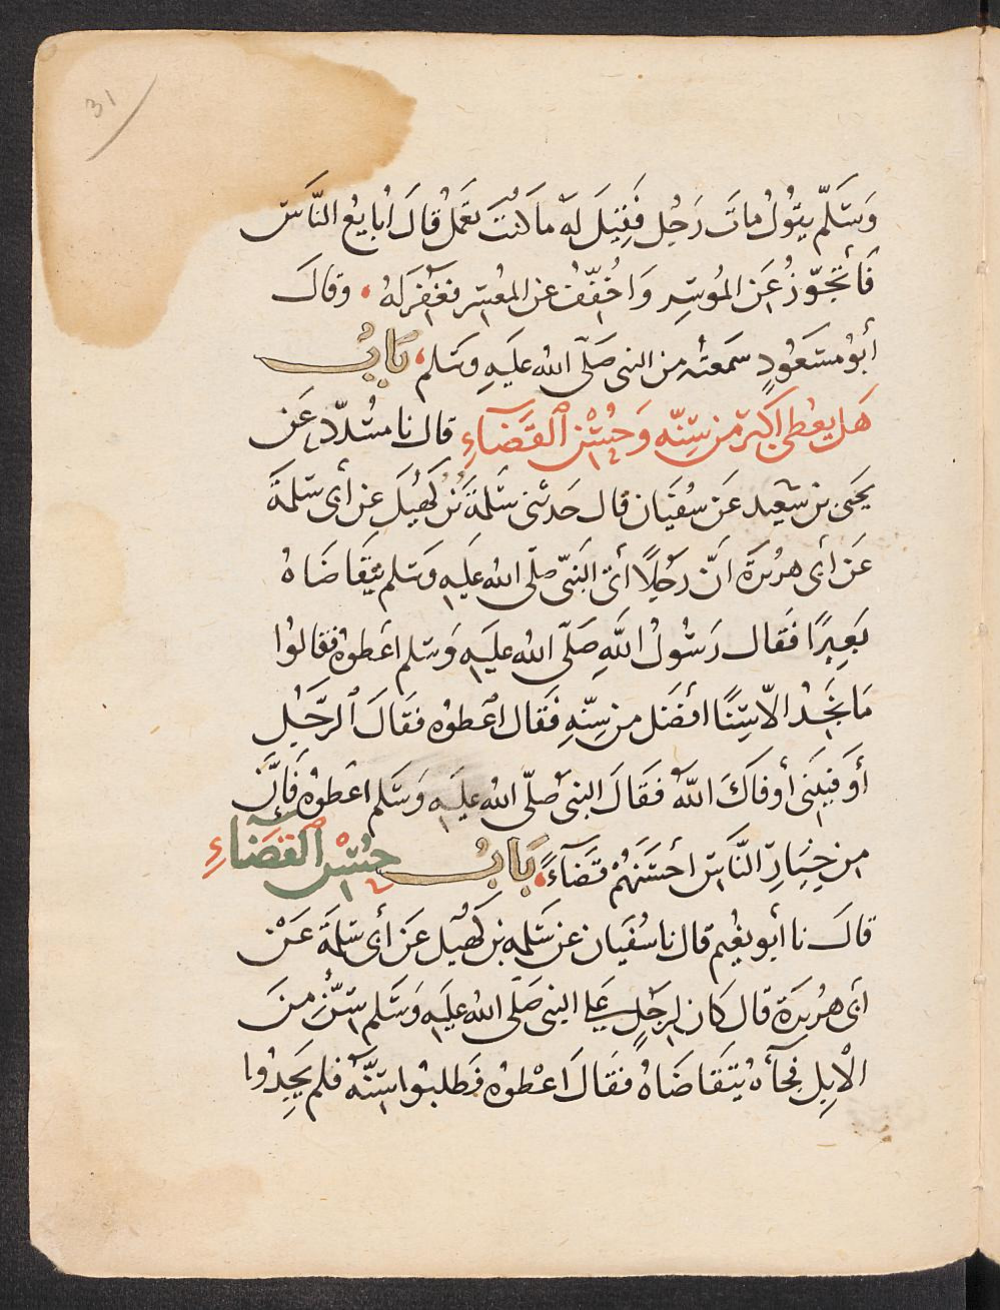 31
وَسَلَّمَ يَقُولُ مَاتَ رَجُل فَقِيلَ لَهُ مَا كُنْتَ تَعْمَلُ قَالَ أُبَايِعُ النَّاسَ
فَأَتَجَوَّزُ عَنِ المُوسِرِ وَاُخَفِّفُ عن المُعْسِرِ فَغُفِرَ لَهُ . وَقَالَ
أبُو مَسْعُودٍ سَمِعتُهُ من النبى صَلَّى اللهُ عَلَيهِ وسَلم ، بَابُ
هَل يعْطى اكبَرَ من سِنِّهِ وَحُسْنِ القَضَاءِ قال نا مسَدّد عَن
يَحيَى بن سَعِيد عَن سُفْيَان قال حَدثنى سَلَمَةَ بْن كُهَيْلَ عن أبى سَلَمَةَ
عَن أبى هريرَةَ انّ رَجُلًا أتى النَبىّ صلّى الله عَليهِ وسَلم يتَقَاضَاهُ
بَعِيرًا فَقَال رَسُولُ اللَّهِ صَلَّى اللهُ عَلَيهِ وَسَلم اعْطوهُ فقالُوا
مَا نَجِدُ الاّ سِنًّا افْضَل من سِنِّهِ فَقَال اعْطوُه فقَالَ الرَّجُل
أوفَيتَنى أوفَاكَ اللهُ فَقَالَ النبىُ صَلّى الله عَليَهِ وَسَلم اعْطوهُ فَاِنَّ
من خِيَارِ النَّاسِ أحسَنَهُمْ قَضَآءً . بَابُ حُسْنِ القَضَآءِ
قَالَ نا أبو نعَيْم قال نا سُفيَان عن سَلمه بن كُهَيل عَن أبى سَلَمَةَ عَنْ
ابى هُرَيرَةَ قال كان لِرَجُلٍ عَلى النبى صَلّى اللهُ عَليَهِ وَسَلم سِنٌّ مِنَ
الْاِبِل فَجآءهُ يَتَقَاضَاهُ فَقَالَ اعْطوُه فَطلبُوا سِنَّهُ فلم يَجِدُوا